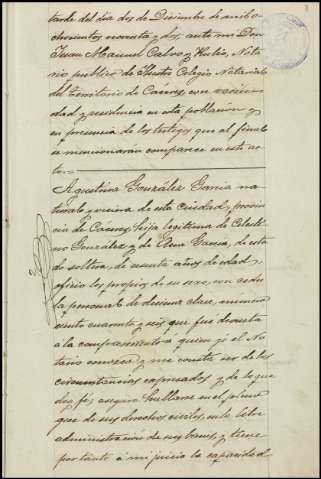 tarde del día dos de Diciembre de mil o-
chocientos noventa y dos, ante mi Don
Juan Manuel Calvo y Nota-
rio público de Ilustre Colegio Notarial
del Territorio de Cáceres, con vecin-
dad y residencia en esta población y
en presencia de los testigos que al final
se mencionarán comparece en este ac-
to.
Agustina González García na-
tural y vecina de esta Ciudad, provin-
cia de Cáceres, hija legítima de Celesti-
no González y de Elena García, de esta-
do soltera, de años de edad,
oficio los propios de su sexo, con cedu-
la personal de décima clase, número
ciento cuarenta y seis que fué devuelta
a la compareciente a quien yo el No-
tario conozco y me consta ser de las
circunstancias expresadas y de lo que
doy fé; asegura hallarse en el pleno
goce de sus derechos civiles, en la libre
administración de sus bienes, y tiene
por tanto á mi juicio la capacidad